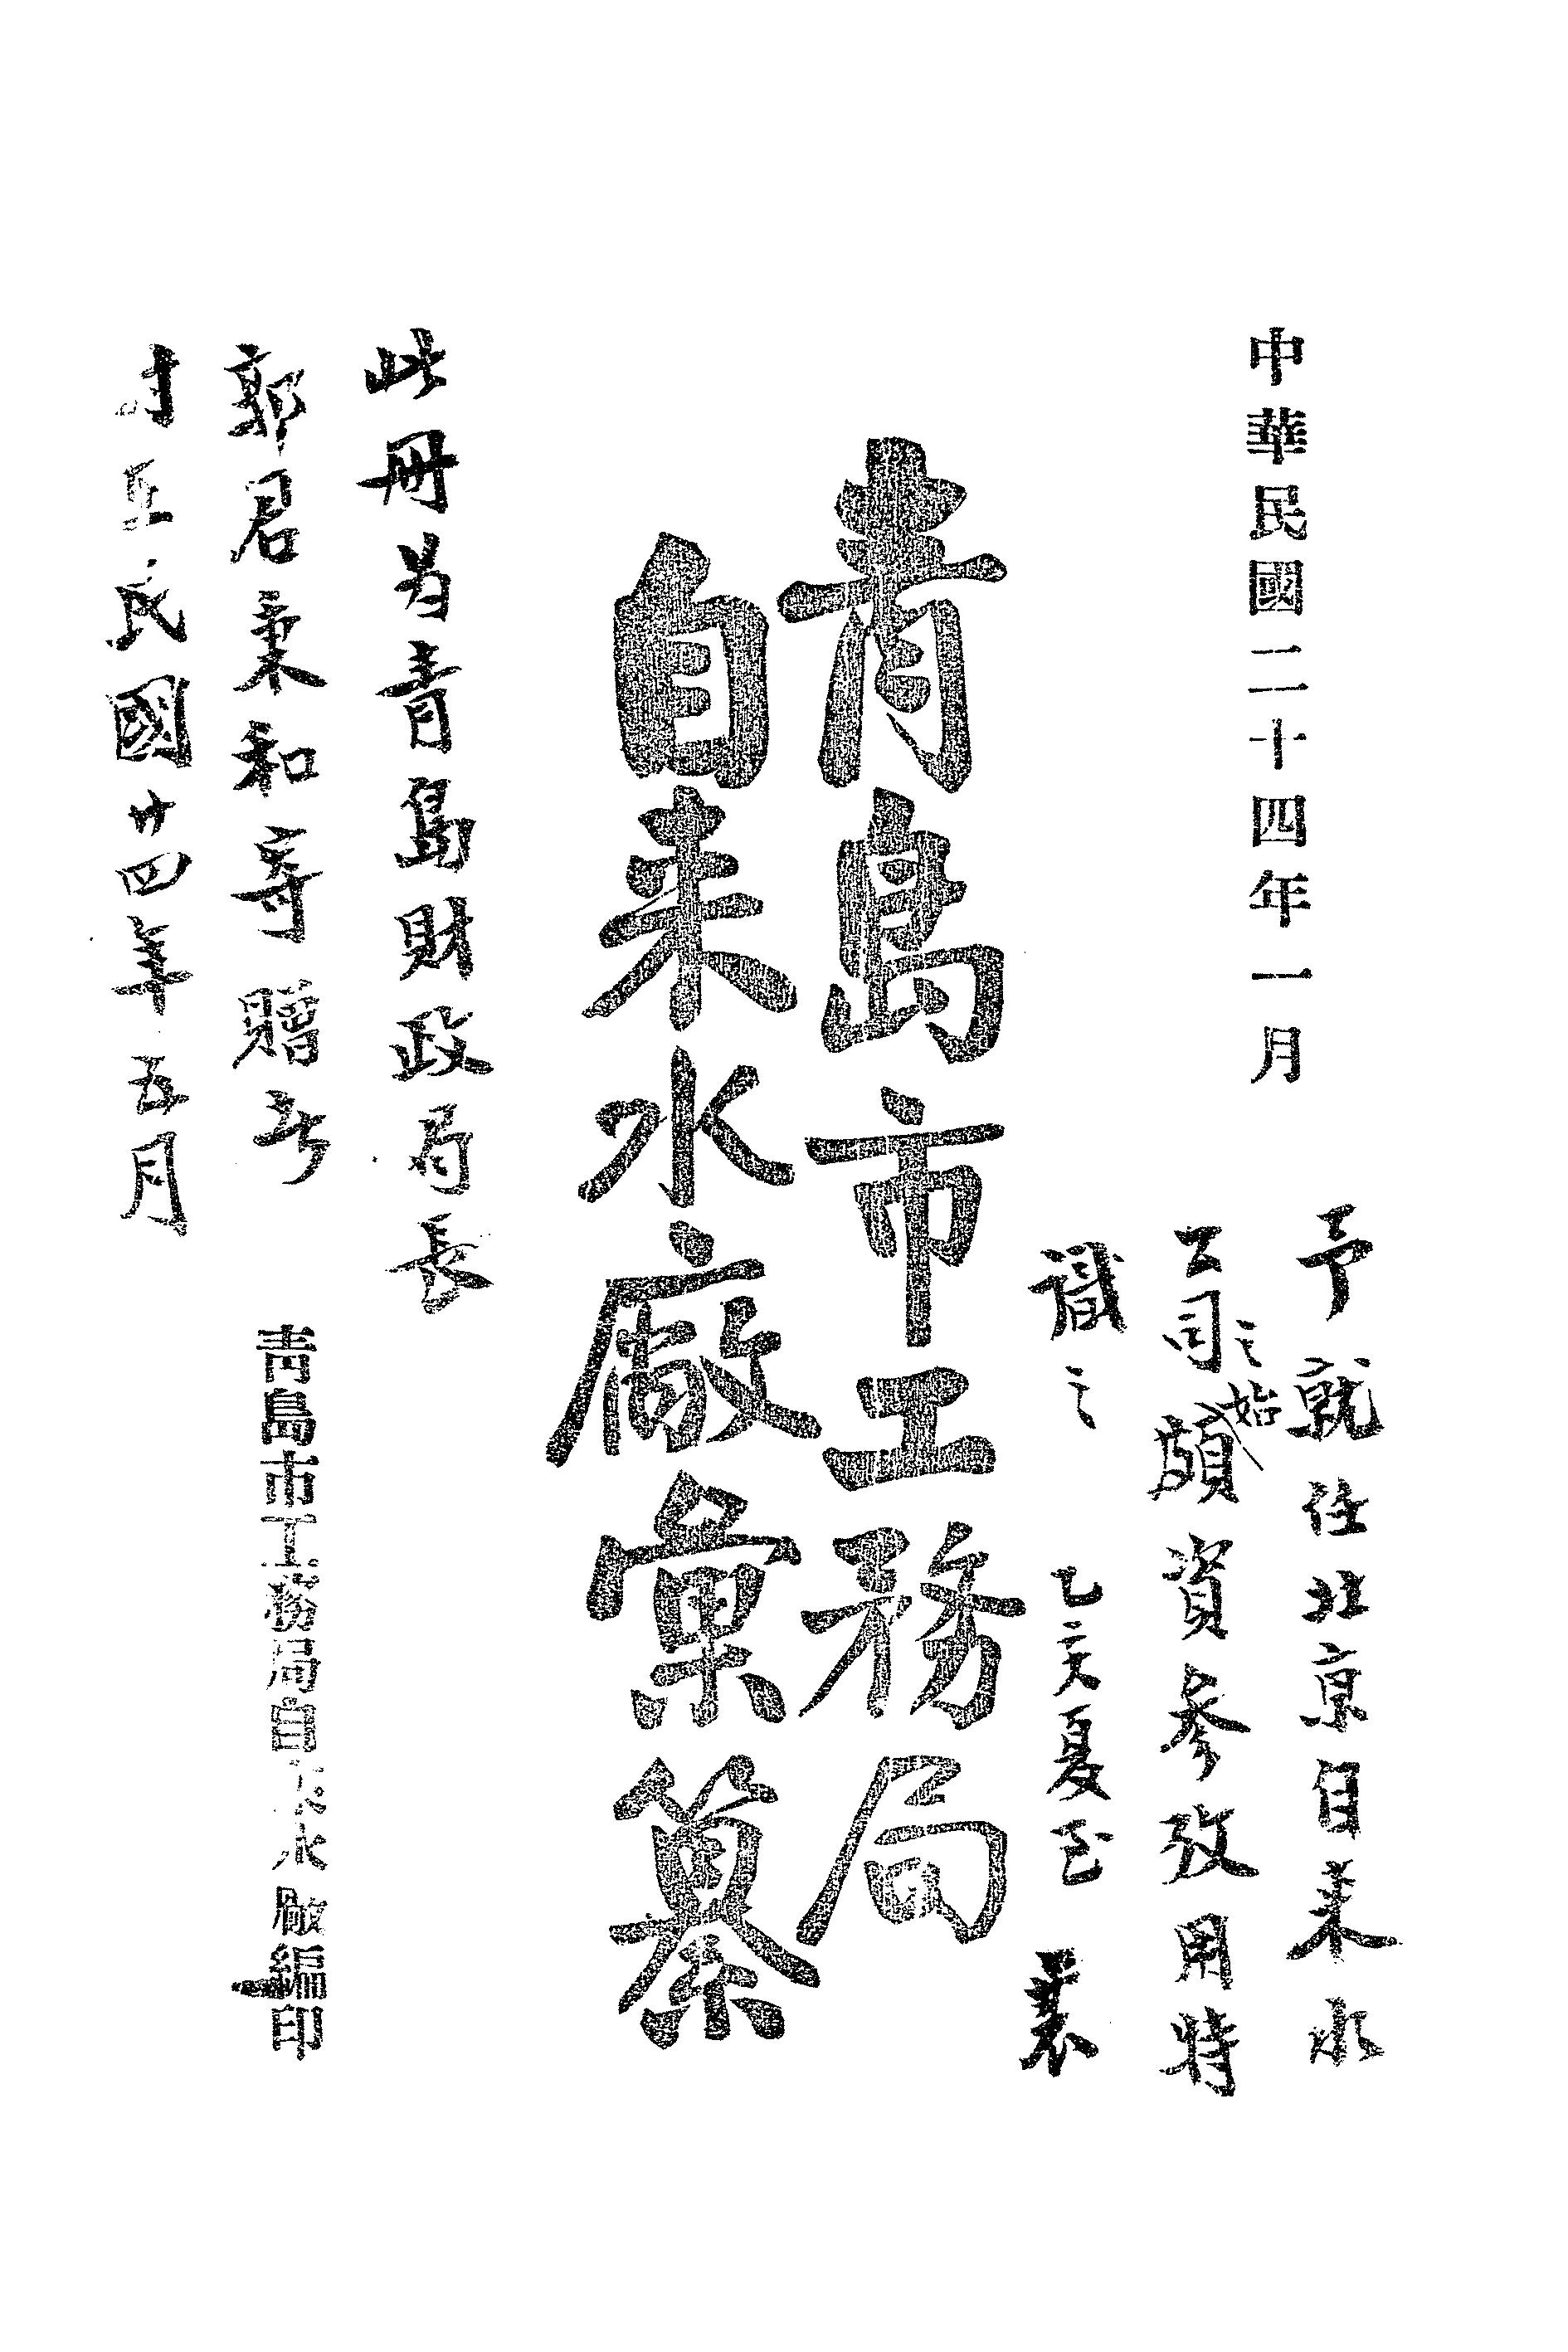 中華民國二十四年一月
予就任北京自来水
公司之始頗資參攷用特
識之 乙亥夏至
青島市工務局
自来水廠彙纂
此册为青島財政局長
郭君秉和寄贈者
时在民國廿四年五月
青島市工務局自來水廠編印